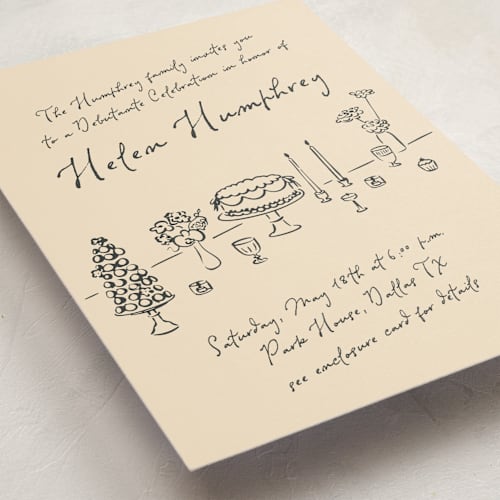 The Humphrey family invites you
to a Debutante Celebration in honor of
Helen Humphrey
Saturday, May 18th at 6:00 p.m.
Park House, Dallas TX
see enclosure card for details